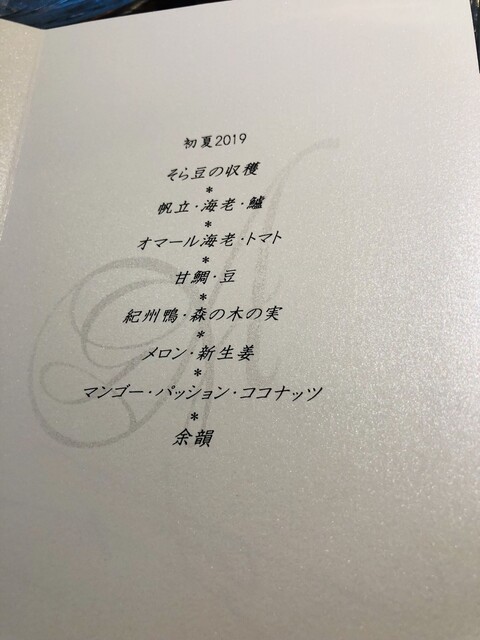 初夏2019
そら豆の収穫
*
帆立・海老・鱸
*
オマール海老・トマト
*
甘鯛・豆
*
紀州鴨・森の木の実
*
メロン・新生姜
*
マンゴー・パッション・ココナッツ
*
余韻